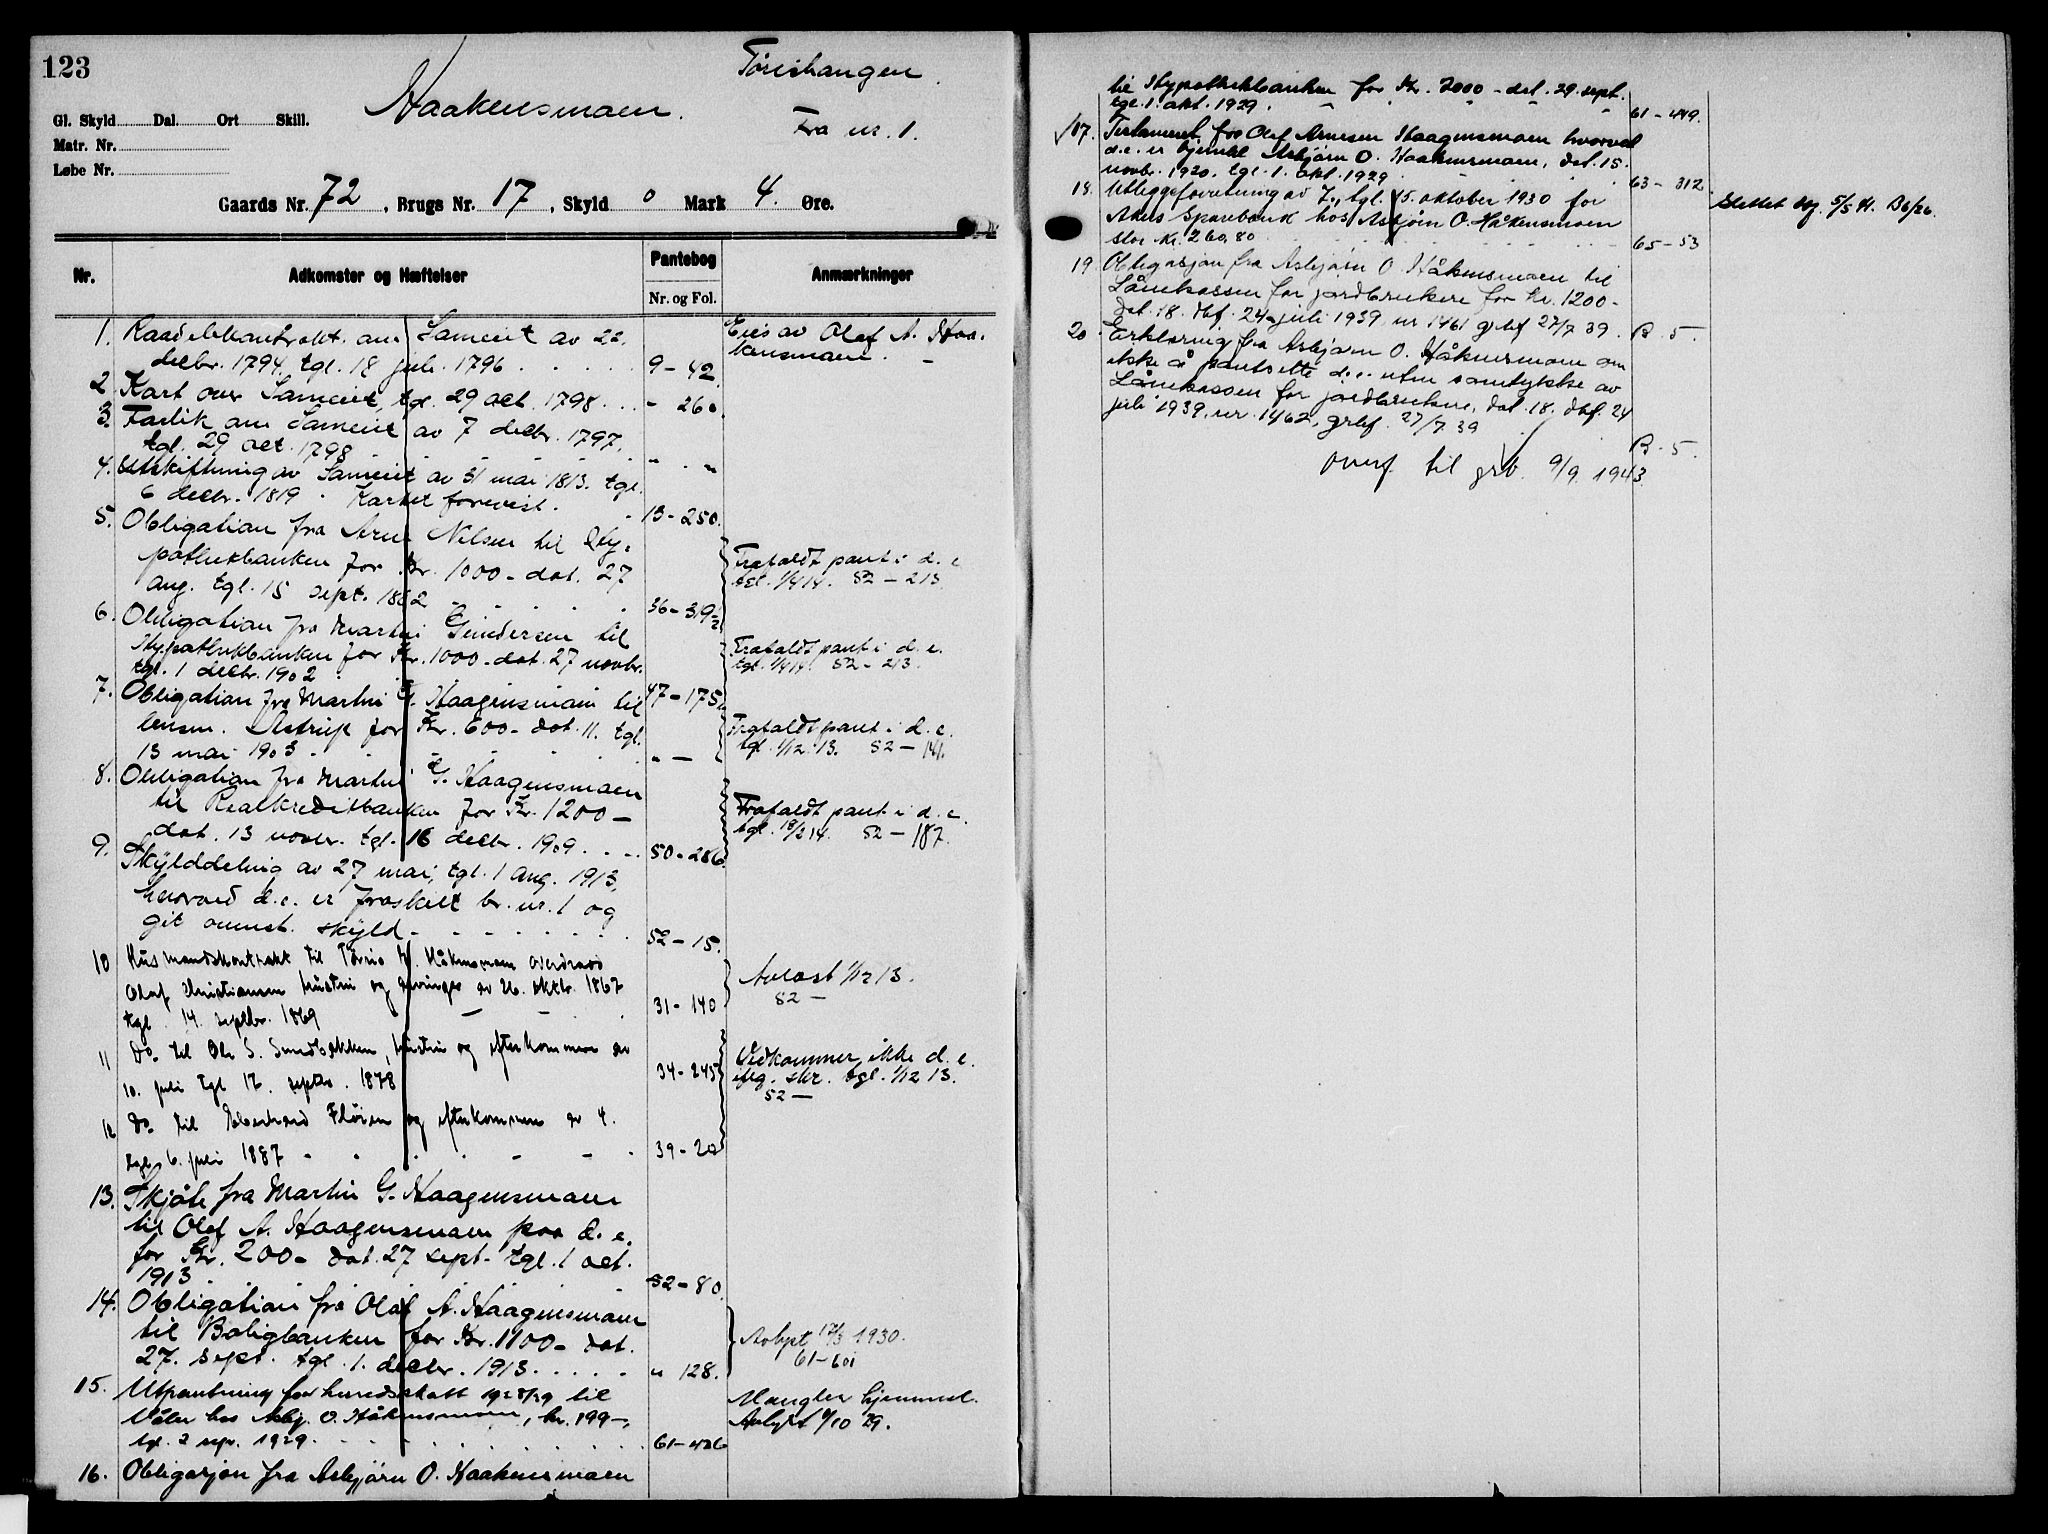 123
Tørishaugen.
Haakensmoen.
Fra nr. 1.
Gl. Skyld Dal. Ort Skill.
Matr. Nr.
Løbe Nr.
Gaards Nr. 72, Brugs Nr. 17, Skyld 0 Mark 4. Øre.
Nr. Adkomster og Hæftelser Pantebog Anmærkninger
Nr. og Fol.
1. Kaadelskontrakt om Sameiet av 22. Eies av Olef A. Haa-
decbr. 1794, tgl. 18 juli 1796 9-42. kensmoen.
2 Kart over Sameiet, tgl. 29 oct. 1798 - 260.
3. Forlik om Sameiet av 7 decbr. 1797,
tgl. 29 oct. 1798 " - "
4. Utskiftning av Sameiet av 31 mai 1813. tgl.
6 decbr. 1819. Kartet forevist. 13-250.
5. Obligation fra Arne Nilsen til Hy-
pothekbanken for Kr. 1000- dat. 27 Frafaldt pant i d. e.
aug. tgl. 15 sept. 1882 36-319 tgl. 1/4 14. 52-213.
6. Obligation fra Martin Gundersen til
Hypothekbanken for Kr. 1000- dat. 27 novbr. Frafaldt pant i d. e.
tgl. 1 decbr. 1902 47-175. tgl. 1/4 14. 52-213.
7. Obligation fra Martin G. Haagensmoen til
lensm. Astrup for Kr. 600- dat. 11. tgl. Frafaldt pant i d. e.
13 mai 1903 " - tgl. 1/12 13. 52-141.
8. Obligation fra Martin G. Haagensmoen
til Realkreditbanken for Kr. 1200- Frafaldt pant i d. e.
dat. 13 novbr. tgl. 16 decbr. 1909 50-286. tgl. 18/2 14. 52-187.
9. Skylddeling av 27 mai, tgl. 1 aug. 1913,
hvorved d. e. er fraskilt br. nr. 1 og
git ovenst. skyld 52-15.
10 Husmandskontrakt til H. Håkensmoen overdraa
Olaf Christiansen hustru og av 26. oktbr. 1867 Avløst 1/12 13.
tgl. 14. septbr. 1869 31-140 52-
11 Do. til Ole S. Sundbakken, hustru og efterkommere av Vedkommer ikke d. e.
10. juli tgl 17. septbr. 1878 34-245 iflg. skr. tgl. 1/12 13.
52-
12 Do. til Eberhard Fløien og efterkommere av 4.
tgl. 6. juli 1887 39-20
13. Skjøte fra Martin G. Haagensmoen
til Olef A. Haagensmoen paa d. e.
for Kr. 200- dat. 27 sept. tgl. 1 oct.
1913 52-80.
14. Obligation fra Olaf A. Haagensmoen
til Boligbanken for Kr. 1100- dat. Avlyst 17/3 1930.
27. sept. tgl. 1. decbr. 1913 " 128. 61-601
15. Utpantning for herredsskatt 1928/29 til Mangler hjemmel.
Våler hos Asbj. O. Håkensmoen, kr. 199-, Avlyst 4/10 29.
tgl. 2 sep. 1929. 61-426
16. Obligasjon fra Asbjørn O. Haakensmoen
til Hypothekbanken for Kr. 2000- dat. 29. sept.
tgl. 1. okt. 1929. 61-449.
17. Testament fra Olef Arnesen Haagensmoen hvorved
d. e. er hjemlet Asbjørn O. Haakensmoen, dat. 15.
novbr. 1920, tgl. 1. okt. 1929. 63-312.
18. Utleggsforretning av 7., tgl. 15. oktober 1930 for Slettet 5/5 B6/26.
Akers Sparebank hos Asbjørn O. Håkensmoen
stor kr. 260,80 65-53
19. Obligasjon fra Asbjørn O. Håkensmoen til
Lånekassen for jordbrukere for kr. 1200-
dat. 18. dbf. 24 juli 1939 nr 1461 grbf 27/7 39. B. 5.
20. Erklæring fra Asbjørn O. Håkensmoen om
ikke å pantsette d. e. uten samtykke av
Lånekassen for jordbrukere, dat. 18. dbf. 24
juli 1939, nr. 1462, grbf. 27/7 39 B. 5.
overf. til grb. 9/9 1943.